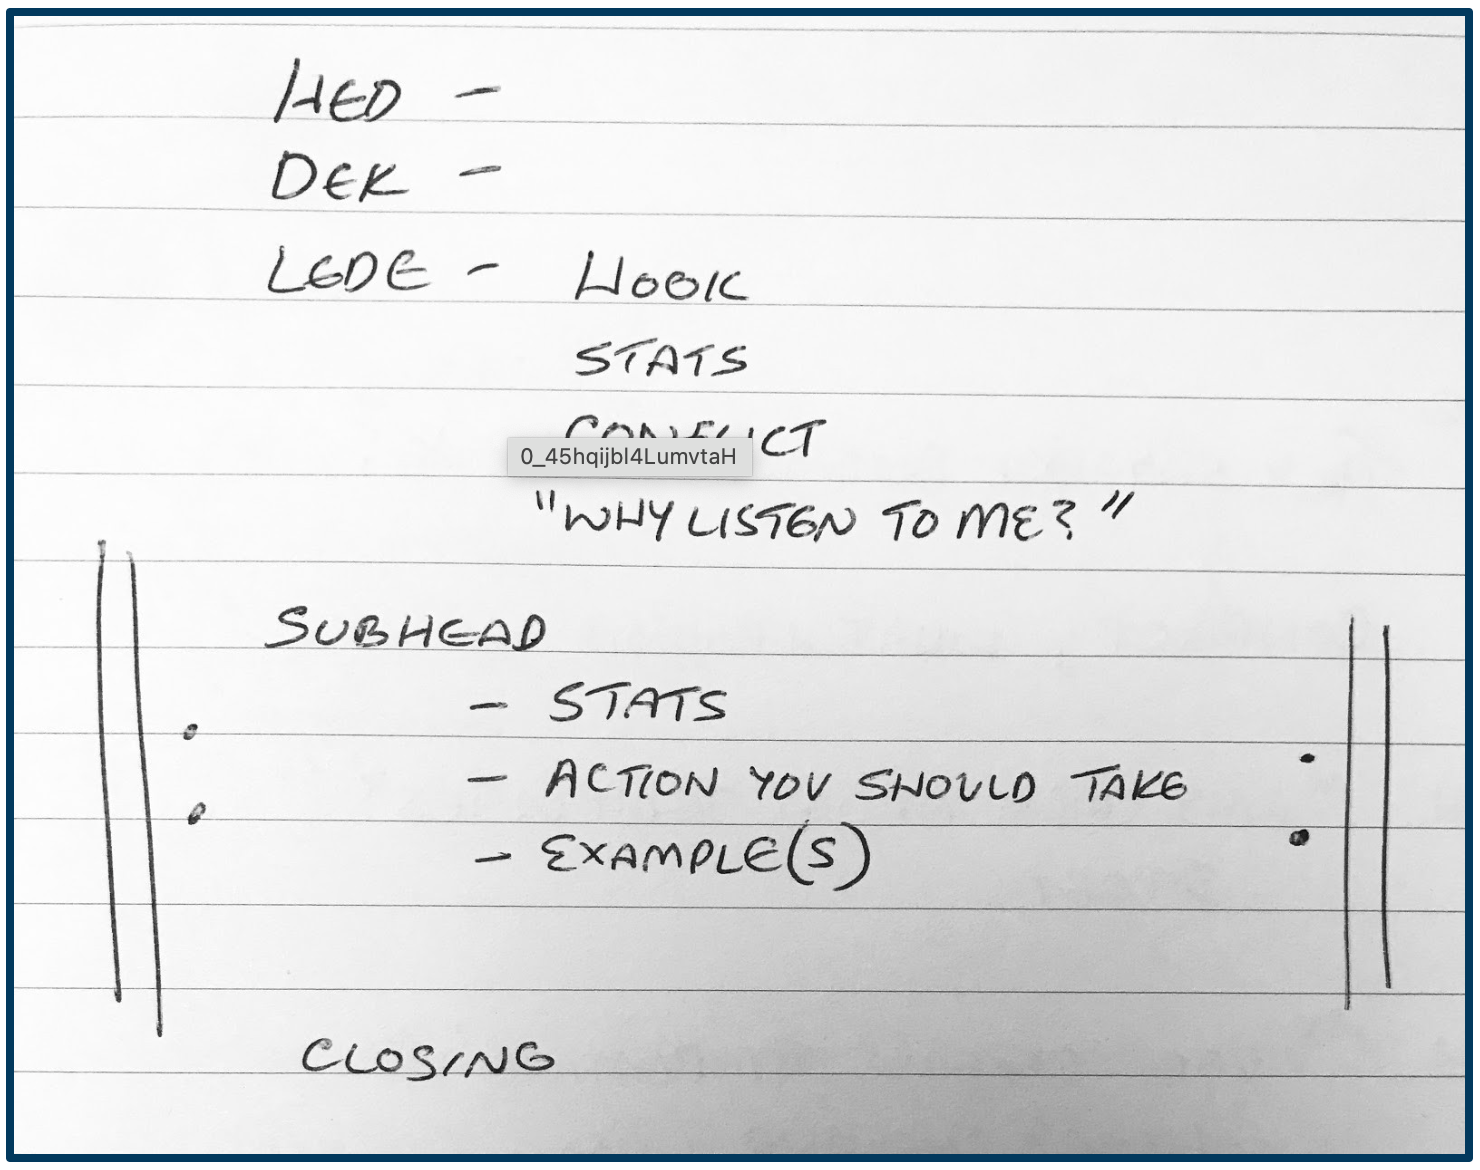 HED -
DEK -
LEDE - HOOK
STATS
CONFLICT
0_45hqijbl4LumvtaH
"WHY LISTEN TO ME?"
SUBHEAD
- STATS
- ACTION YOU SHOULD TAKE
- EXAMPLE(S)
CLOSING